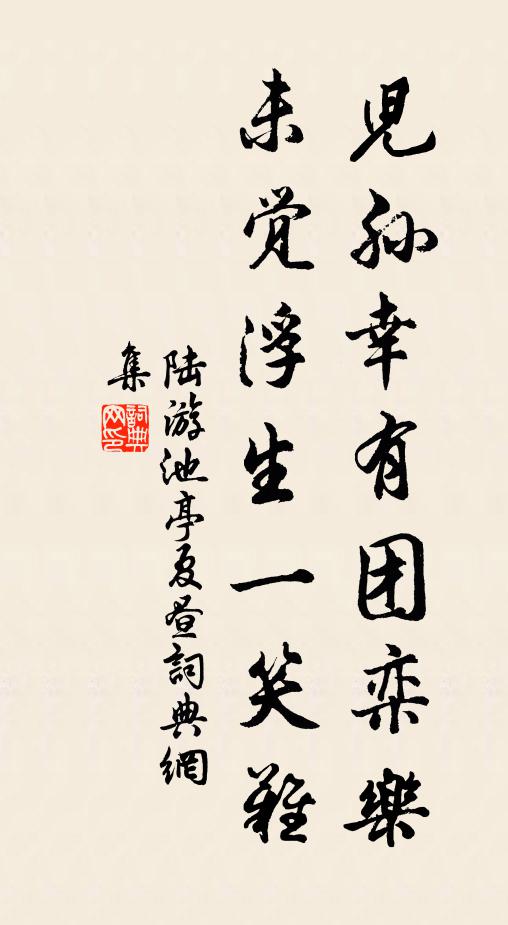 児孙幸有团栾樂
未觉浮生一笑難
陆游池亭夏昼詞典網
集
詞典网印